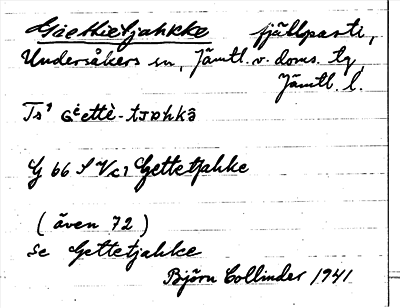 Gaettietjahkke fjällparti,
Undersåkers sn, Jämtl. v. doms. tg
Jämtl. l.
Ts¹ Gèettè-tjahkē
G 66 S V c 1 Gettetjahke
(även 72)
Se Gettetjahke
Björn Collinder 1941